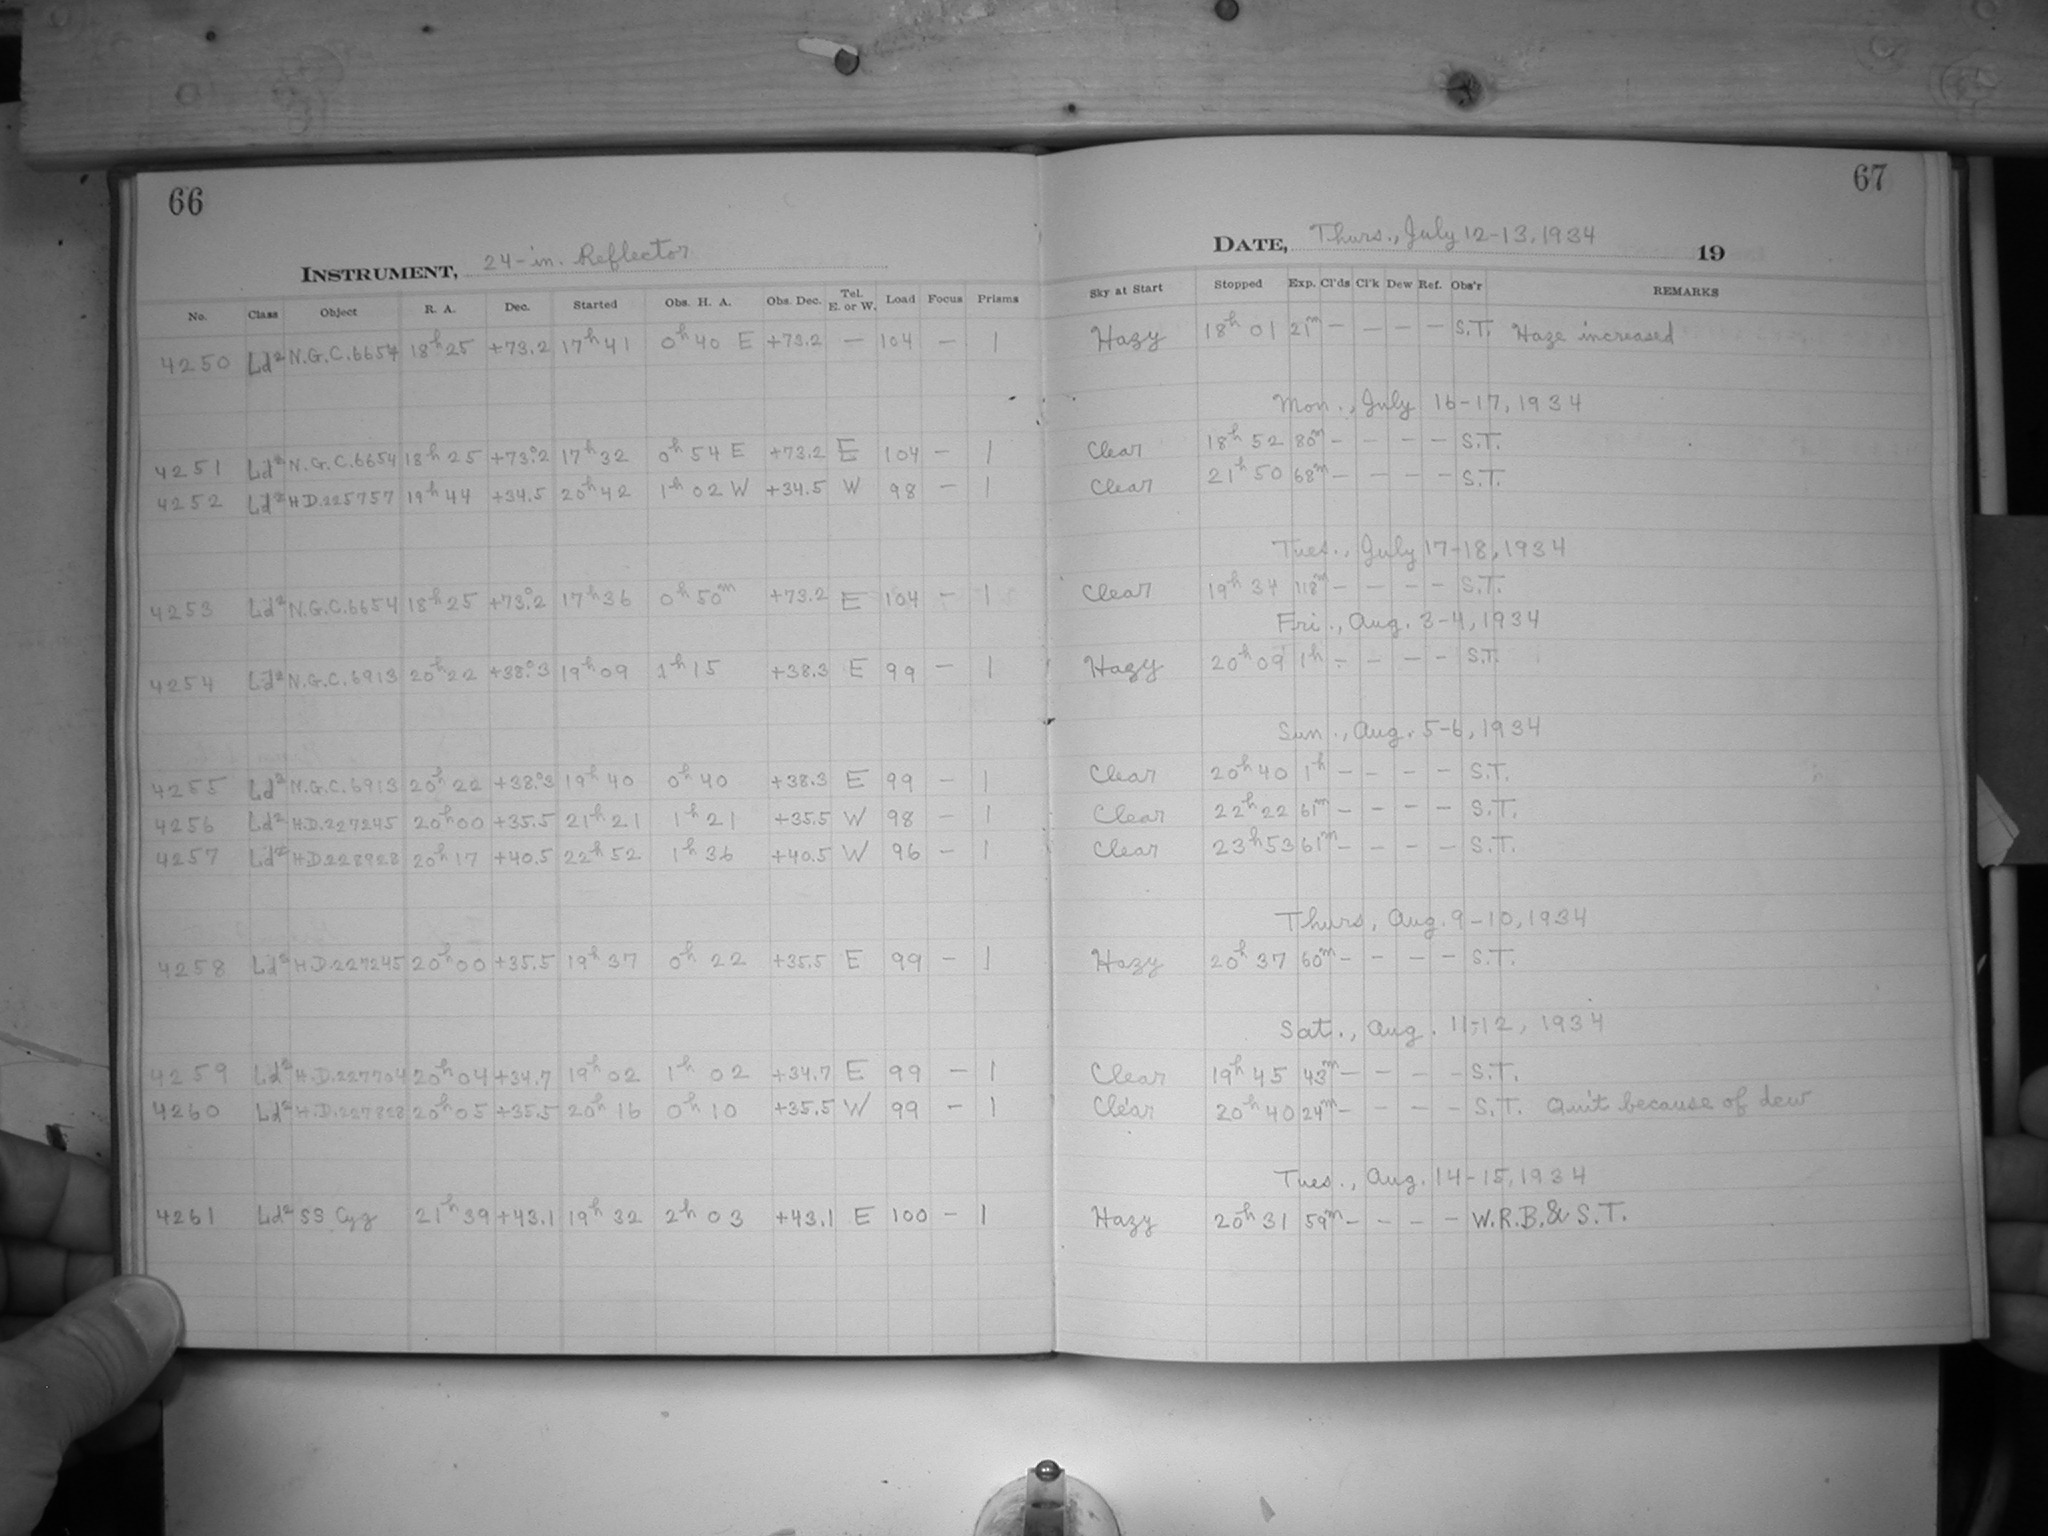 66
INSTRUMENT, 24-in. Reflector
No. Class Object R. A. Dec. Started Obs. H. A. Obs. Dec. Tel. E. or W. Load Focus Prisms
4250 Ld² N.G.C.6654 18ʰ25 +73.2 17ʰ41 0ʰ40 E +73.2 — 104 — 1
4251 Ld² N.G.C.6654 18ʰ25 +73°.2 17ʰ32 0ʰ54 E +73.2 E 104 — 1
4252 Ld² H.D.225757 19ʰ44 +34.5 20ʰ42 1ʰ02 W +34.5 W 98 — 1
4253 Ld² N.G.C.6654 18ʰ25 +73°.2 17ʰ36 0ʰ50ᵐ +73.2 E 104 — 1
4254 Ld² N.G.C.6913 20ʰ22 +38°.3 19ʰ09 1ʰ15 +38.3 E 99 — 1
4255 Ld² N.G.C.6913 20ʰ22 +38°.3 19ʰ40 0ʰ40 +38.3 E 99 — 1
4256 Ld² H.D.227245 20ʰ00 +35.5 21ʰ21 1ʰ21 +35.5 W 98 — 1
4257 Ld² H.D.228928 20ʰ17 +40.5 22ʰ52 1ʰ36 +40.5 W 96 — 1
4258 Ld² H.D.227245 20ʰ00 +35.5 19ʰ37 0ʰ22 +35.5 E 99 — 1
4259 Ld² H.D.227704 20ʰ04 +34.7 19ʰ02 1ʰ02 +34.7 E 99 — 1
4260 Ld² H.D.227828 20ʰ05 +35.5 20ʰ16 0ʰ10 +35.5 W 99 — 1
4261 Ld² SS Cyg 21ʰ39 +43.1 19ʰ32 2ʰ03 +43.1 E 100 — 1
67
DATE, Thurs., July 12-13, 1934 19
Sky at Start Stopped Exp. Cl'ds Cl'k Dew Ref. Obs'r REMARKS
Hazy 18ʰ01 21ᵐ — — — — S.T. Haze increased
Mon., July 16-17, 1934
Clear 18ʰ52 80ᵐ — — — — S.T.
Clear 21ʰ50 68ᵐ — — — — S.T.
Tues., July 17-18, 1934
Clear 19ʰ34 118ᵐ — — — — S.T.
Fri., Aug. 3-4, 1934
Hazy 20ʰ09 1ʰ — — — — S.T.
Sun., Aug. 5-6, 1934
Clear 20ʰ40 1ʰ — — — — S.T.
Clear 22ʰ22 61ᵐ — — — — S.T.
Clear 23ʰ53 61ᵐ — — — — S.T.
Thurs, Aug. 9-10, 1934
Hazy 20ʰ37 60ᵐ — — — — S.T.
Sat., Aug. 11-12, 1934
Clear 19ʰ45 43ᵐ — — — — S.T.
Clear 20ʰ40 24ᵐ — — — — S.T. Quit because of dew
Tues., Aug. 14-15, 1934
Hazy 20ʰ31 59ᵐ — — — — W.R.B. & S.T.